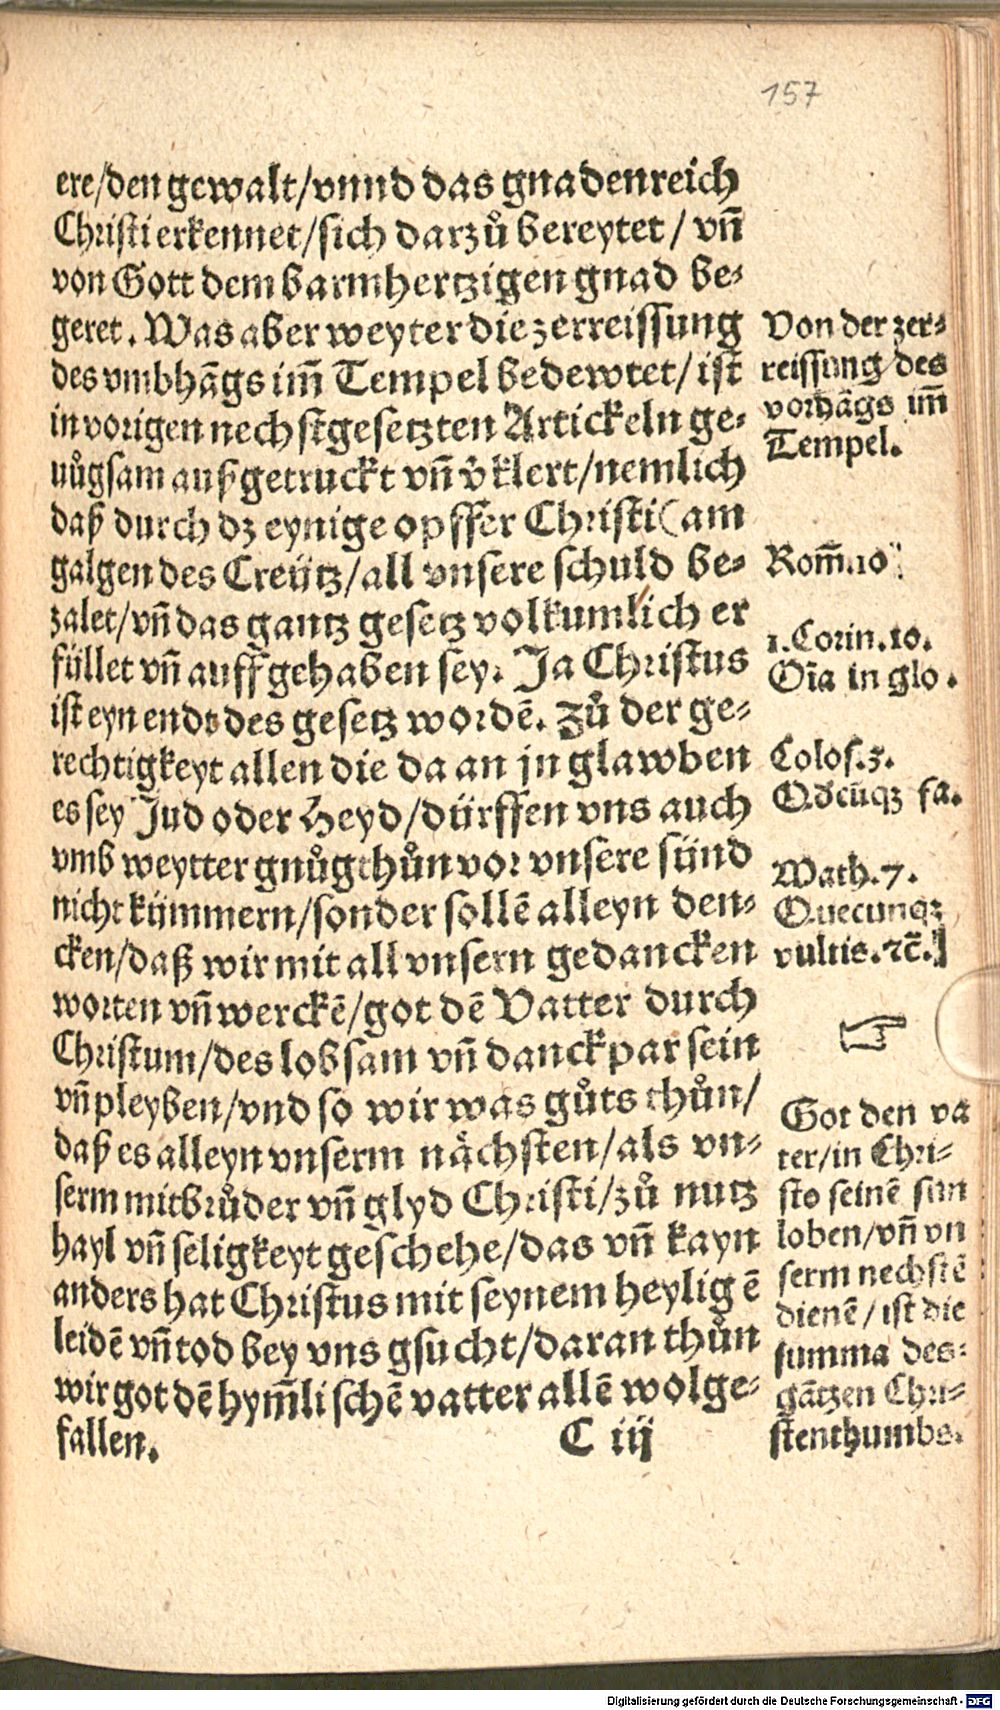 157
ere/den gewalt/vnnd das gnadenreich
Christi erkennet/sich darzů bereytet/ vñ
von Gott dem barmhertzigen gnad be⸗
geret. Was aber weyter die zerreissung
des vmbhãgs im̃ Tempel bedewtet/ist
in vorigen nechstgesetzten Artickeln ge⸗
nůgsam außgetruckt vñ v̊klert/nemlich
daß durch dz eynige opffer Christi (am
galgen des Creütz/all vnsere schuld be⸗
zalet/vñ das gantz gesetz volkumlich er
füllet vñ auffgehaben sey. Ja Christus
ist eyn ende des gesetz wordẽ. Zů der ge⸗
rechtigkeyt allen die da an jn glawben
es sey Jud oder Heyd/dürffen vns auch
vmb weytter gnůgthůn vor vnsere sünd
nicht kümmern/sonder sollẽ alleyn den⸗
cken/daß wir mit all vnsern gedancken
worten vñ werckẽ/got dẽ Vatter durch
Christum/des lobsam vñ danckpar sein
vñ pleyben/vnd so wir was gůts thůn/
daß es alleyn vnserm nächsten/als vn⸗
serm mitbrůder vñ glyd Christi/zů nutz
hayl vñ seligkeyt geschehe/das vñ kayn
anders hat Christus mit seynem heyligẽ
leidẽ vñ tod bey vns gsucht/daran thůn
wir got dẽ hym̃lischẽ vatter allẽ wolge⸗
fallen.
C iij
Von der zer⸗
reissung des
vorhãgs im̃
Tempel.
Rom̃.10
1.Corin.10.
Oĩa in glo.
Colos.3.
Math.7.
Quecunqꝫ
vultis.ꝛc̃.]
☞
Got den va
ter/in Chri⸗
sto seinẽ sun
loben/vñ vn
serm nechstẽ
dienẽ/ist die
summa des⸗
gãtzen Chri⸗
stenthumbs.
Digitalisierung gefördert durch die Deutsche Forschungsgemeinschaft - DFG